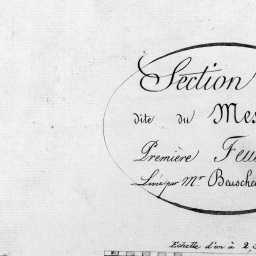 Section
dite du Mes
Première Feui
Levé par Mr Beusche
Echelle d'un à 2,5